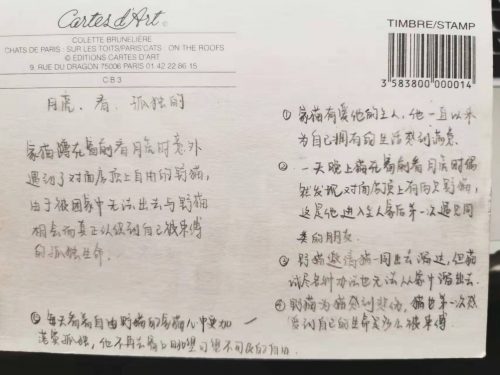 Cartes d'Art
COLETTE BRUNELIÈRE
CHATS DE PARIS : SUR LES TOITS/PARIS'CATS : ON THE ROOFS
© EDITIONS CARTES D'ART
9, RUE DU DRAGON 75006 PARIS 01 42 22 86 15
C.B 3
TIMBRE/STAMP
3 583800 000014
月亮、看、孤独的
家猫蹲在窗前看月亮时意外
遇到了对面房顶上自由的野猫,
由于被困家中无法出去与野猫
相会而真正认识到自己被束缚
的孤独生命.
① 家猫有爱他的主人,他一直以来
为自己拥有的生活感到满意.
② 一天晚上猫在窗前看月亮时偶
然发现对面房顶上有两只野猫,
这是他进入主人家后第一次遇见同
类的朋友.
③ 野猫邀请猫一同出去溜达,但猫
试尽各种办法也无法从家中溜出去.
④ 野猫为猫感到悲伤,猫也第一次感
到自己的生命是多么被束缚
⑤ 每天看着自由野猫的家猫心中更加
孤独,他不再去窗口